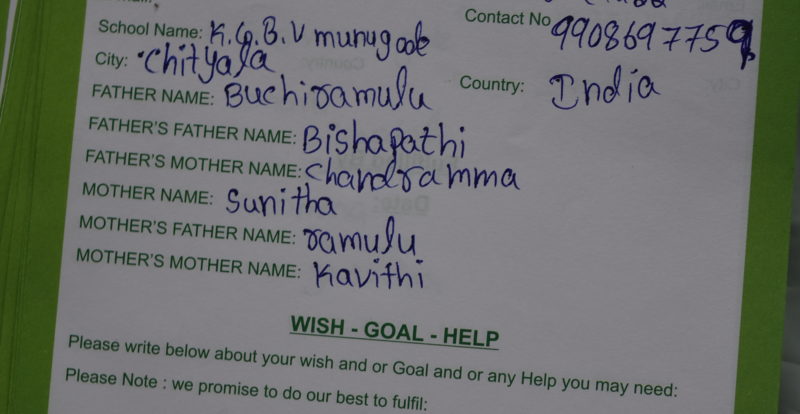 School Name: K.G.B.V munugode
Contact No 9908697759
City: Chityala
Country: India
FATHER NAME: Buchiramulu
FATHER'S FATHER NAME: Bishapathi
FATHER'S MOTHER NAME: Chandramma
MOTHER NAME: Sunitha
MOTHER'S FATHER NAME: ramulu
MOTHER'S MOTHER NAME: Kavithi
WISH - GOAL - HELP
Please write below about your wish and or Goal and or any Help you may need:
Please Note : we promise to do our best to fulfil: